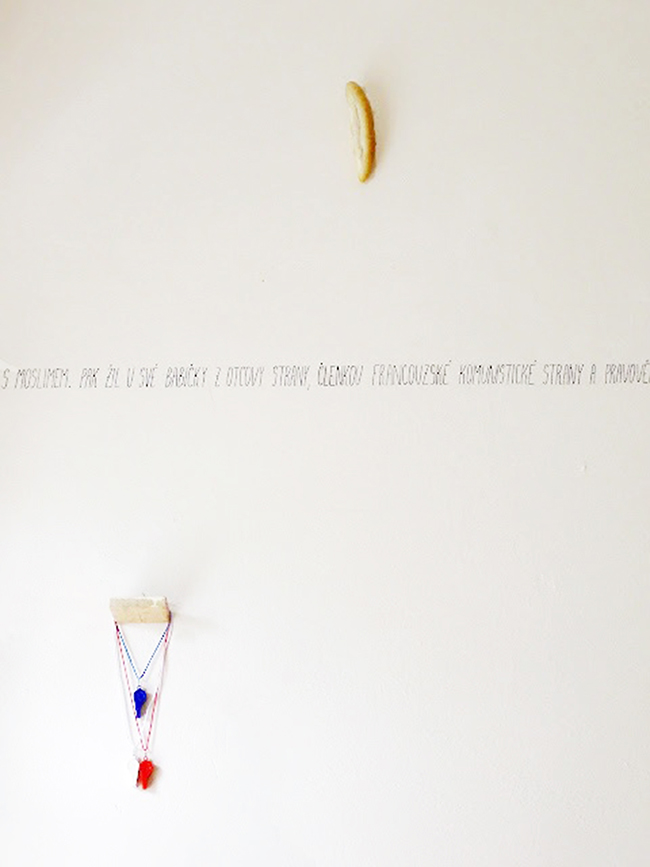 S MOSLIMEM. PAK ŽIL U SVÉ BABIČKY Z OTCOVY STRANY, ČLENKOU FRANCOUZSKÉ KOMUNISTICKÉ STRANY A PRAVOVĚ